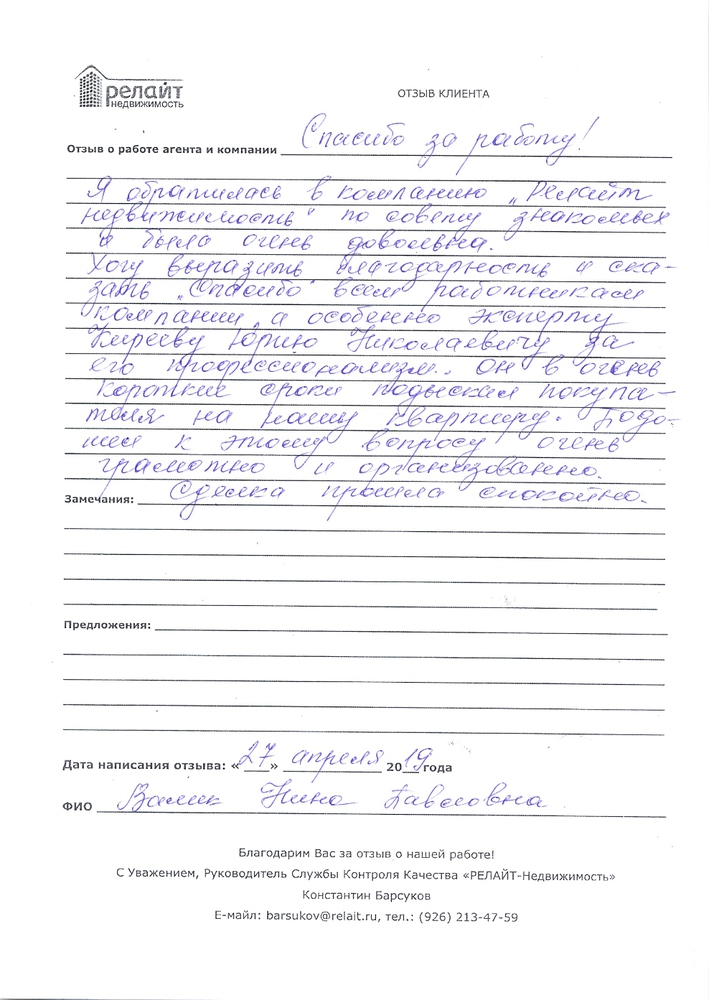 релайт
недвижимость
ОТЗЫВ КЛИЕНТА
Отзыв о работе агента и компании Спасибо за работу!
Я обратилась в компанию „Релайт
недвижимость" по совету знакомых
и была очень довольна.
Хочу выразить благодарность и ска-
зать „Спасибо" всем работникам
компании, а особенно эксперту
Кирееву Юрию Николаевичу за
его профессионализм. Он в очень
короткие сроки подыскал покупа-
теля на нашу квартиру. Подо-
шел к этому вопросу очень
грамотно и организованно.
Замечания: Сделка прошла спокойно.
Предложения:
Дата написания отзыва: «27» апреля 2019 года
ФИО Валик Нина Павловна
Благодарим Вас за отзыв о нашей работе!
С Уважением, Руководитель Службы Контроля Качества «РЕЛАЙТ-Недвижимость»
Константин Барсуков
Е-майл: barsukov@relait.ru, тел.: (926) 213-47-59